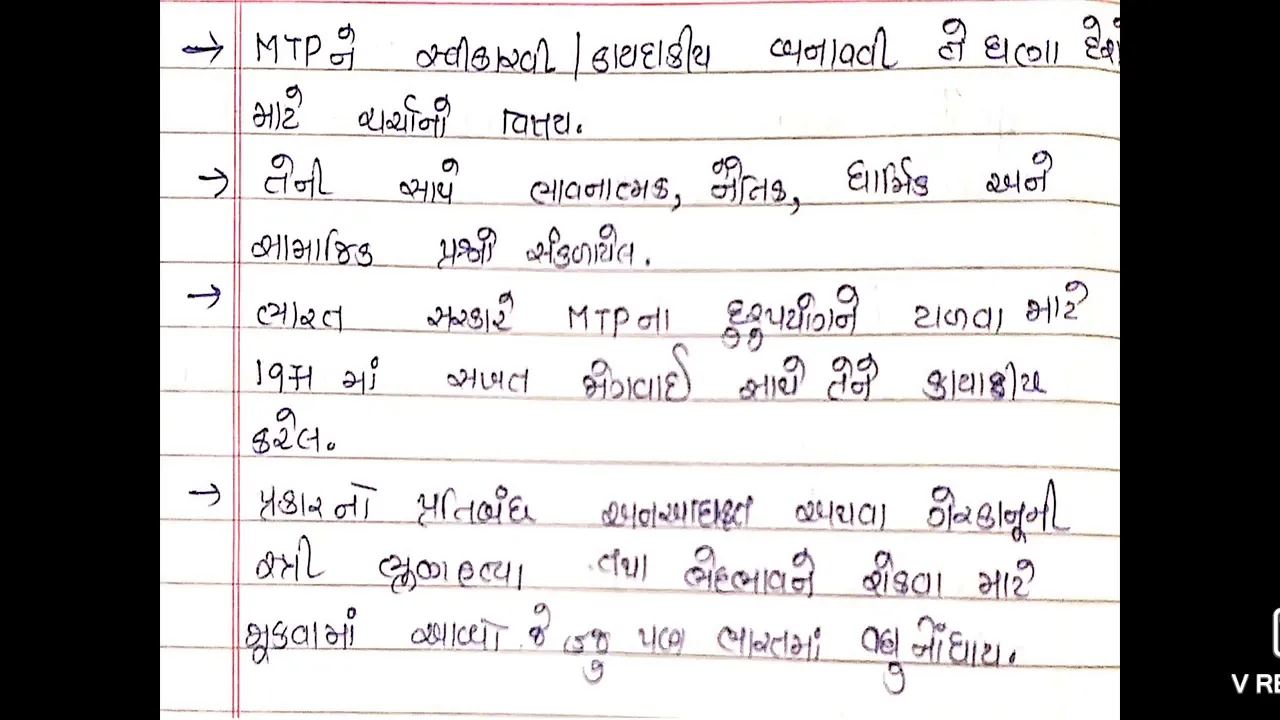 → MTPને સ્વીકારવી / કાયદાકીય બનાવવી તે ઘણા દેશો
માટે ચર્ચાનો વિષય.
→ તેની સાથે ભાવનાત્મક, નૈતિક, ધાર્મિક અને
સામાજિક પ્રશ્નો સંકળાયેલ.
→ ભારત સરકારે MTPના દુરુપયોગને ટાળવા માટે
1971 માં સખત જોગવાઈ સાથે તેને કાયાકીય
કરેલ.
→ પ્રકારનો પ્રતિબંધ અથવા ગેરકાનૂની
સ્ત્રી ભ્રૂણહત્યા તથા ભેદભાવને રોકવા માટે
મૂકવામાં આવ્યો જે હજુ પણ ભારતમાં વધુ નોંધાય.
V RE